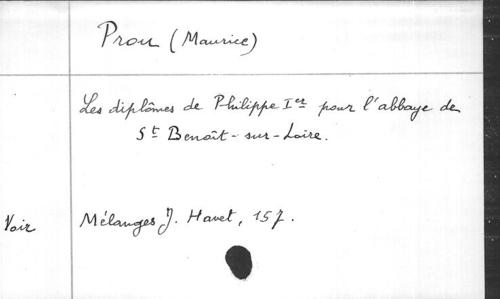 Prou (Maurice)
Les diplômes de Philippe Ier pour l'abbaye de
St Benoît-sur-Loire.
Voir Mélanges J. Havet, 157.